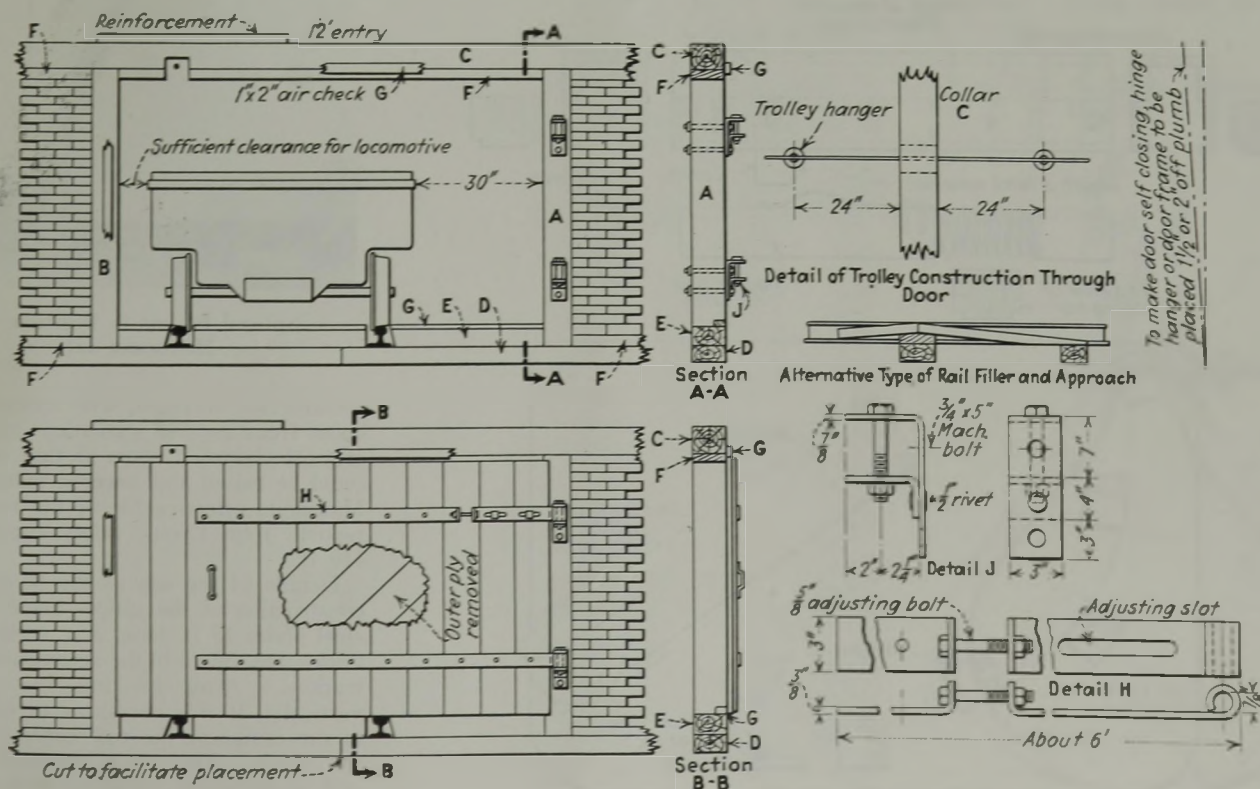 Reinforcement
12' entry
A
F
C
1"x2" air check G
F
Sufficient clearance for locomotive
30"
A
B
G E D
F
A
F
C
G
F
A
J
E
D
Section
A-A
Trolley hanger
Collar
C
24"
24"
Detail of Trolley Construction Through
Door
Alternative Type of Rail Filler and Approach
To make door self closing, hinge
hanger or door frame to be
placed 1 1/2" or 2" off plumb
B
H
Outer ply
removed
Cut to facilitate placement
B
C
G
F
E
G
D
Section
B-B
7/8"
3/4" x 5"
Mach.
bolt
1/2" rivet
2"
Detail J
7"
4"
3"
3"
5/8" adjusting bolt
Adjusting slot
3"
3/8"
Detail H
About 6'